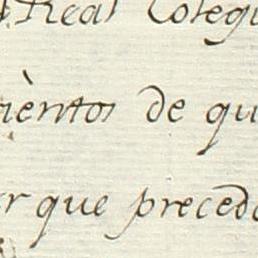 Real Colegi
ièntos de qu
r que preced